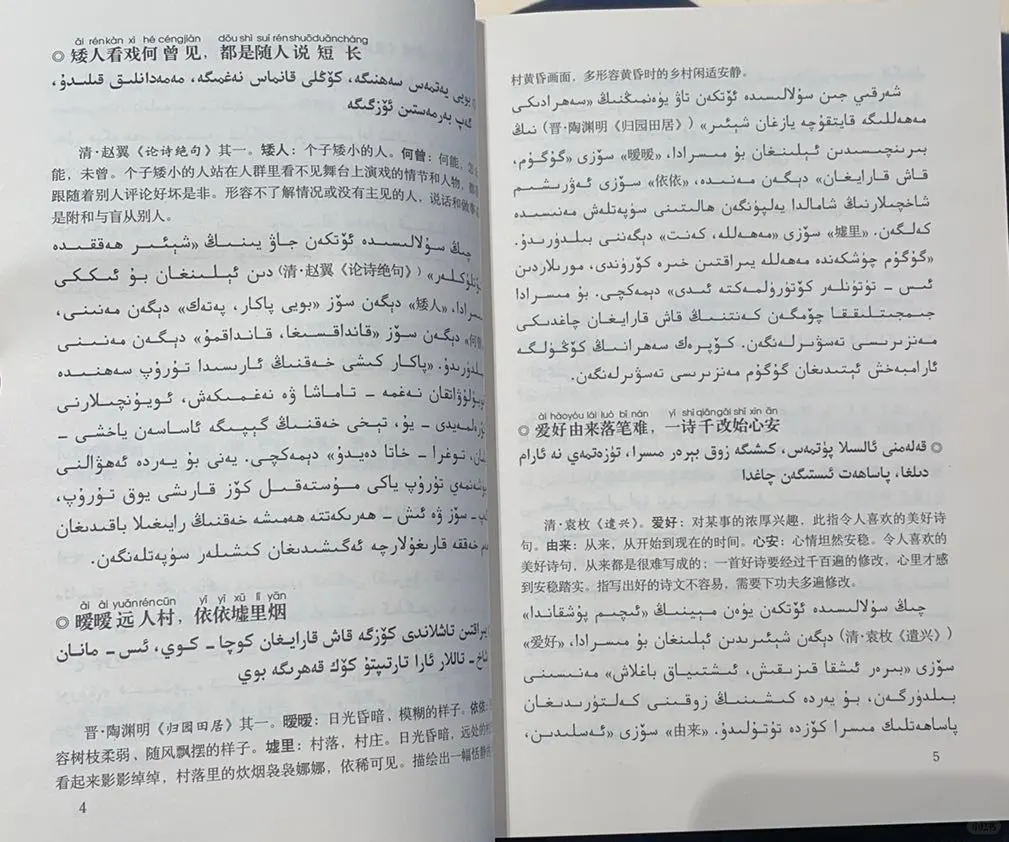 ǎi rén kàn xì hé céng jiàn dōu shì suí rén shuō duǎn cháng
◎矮人看戏何曾见，都是随人说短长
بويى يەتمەس سەھنىگە، كۆڭلى قانماس نەغمىگە، مەمەدانلىق قىلىدۇ،
گەپ بەرمەستىن ئۆزگىگە
清·赵翼《论诗绝句》其一。矮人：个子矮小的人。何曾：何能，
能、未曾。个子矮小的人站在人群里看不见舞台上演戏的情节和人物，都
跟随着别人评论好坏是非。形容不了解情况或没有主见的人，说话和做事
是附和与盲从别人。
چىڭ سۇلالىسىدە ئۆتكەن جاۋ يىنىڭ «شېئىر ھەققىدە
(清·赵翼《论诗绝句》) دىن ئېلىنغان بۇ ئىككى
مىسرادا، «矮人» دېگەن سۆز «بويى پاكار، پەتەك» دېگەن مەنىنى،
«何曾» دېگەن سۆز «قانداقسىغا، قانداقمۇ» دېگەن مەنىنى
بىلدۈرىدۇ. «پاكار كىشى خەقنىڭ ئارىسىدا تۇرۇپ سەھنىدە
نەغمە - تاماشا ۋە نەغمىكەش، ئويۇنچىلارنى
كۆرەلمەيدى - يۇ، تېخى خەقنىڭ گېپىگە ئاساسەن ياخشى -
يامان، توغرا - خاتا دەيدۇ» دېمەكچى. يەنى بۇ يەردە ئەھۋالنى
چۈشەنمەي تۇرۇپ ياكى مۇستەقىل كۆز قارىشى يوق تۇرۇپ،
گەپ - سۆز ۋە ئىش - ھەرىكەتتە ھەمىشە خەقنىڭ رايىغىلا باقىدىغان
ھەم خەققە قارىغۇلارچە ئەگىشىدىغان كىشىلەر سۈپەتلەنگەن.
ài ài yuǎn rén cūn yī yī xū lǐ yān
◎暧暧远人村，依依墟里烟
يىراقتىن تاشلاندى كۆزگە قاش قارايغان كوچا - كوي، ئىس - مانان
شاخ - تاللار ئارا تارتىپتۇ كۆك قەھرىگە بوي
晋·陶渊明《归园田居》其一。暧暧：日光昏暗，模糊的样子。依依：
容树枝柔弱，随风飘摆的样子。墟里：村落，村庄。日光昏暗，远处的
看起来影影绰绰，村落里的炊烟袅袅娜娜，依稀可见。描绘出一幅恬静
4
村黄昏画面，多形容黄昏时的乡村闲适安静。
شەرقىي جىن سۇلالىسىدە ئۆتكەن تاۋ يۈەنمىڭنىڭ «سەھرادىكى
مەھەللىگە قايتقۇچە يازغان شېئىر» (晋·陶渊明《归园田居》) نىڭ
بىرىنچىسىدىن ئېلىنغان بۇ مىسرادا، «暧暧» سۆزى «گۇگۇم،
قاش قارايغان» دېگەن مەنىدە، «依依» سۆزى ئەۋرىشىم
شاخچىلارنىڭ شامالدا يەلپۈنگەن ھالىتىنى سۈپەتلەش مەنىسىدە
كەلگەن. «墟里» سۆزى «مەھەللە، كەنت» دېگەننى بىلدۈرىدۇ.
«گۇگۇم چۈشكەندە مەھەللە يىراقتىن خىرە كۆرۈندى، مورىلاردىن
ئىس - تۈتۈنلەر كۆتۈرۈلمەكتە ئىدى» دېمەكچى. بۇ مىسرادا
جىمجىتلىققا چۆمگەن كەنتنىڭ قاش قارايغان چاغدىكى
مەنزىرىسى تەسۋىرلەنگەن. كۆپرەك سەھرانىڭ كۆڭۈلگە
ئارامبەخش ئېتىدىغان گۇگۇم مەنزىرىسى تەسۋىرلەنگەن.
ài hǎo yóu lái luò bǐ nán yī shī qiān gǎi shǐ xīn ān
◎爱好由来落笔难，一诗千改始心安
قەلەمنى ئالسىلا پۈتمەس، كىشىگە زوق بېرەر مىسرا، تۈزەتمەي نە ئارام
دىلغا، پاساھەت ئىستىگەن چاغدا
清·袁枚《遣兴》。爱好：对某事的浓厚兴趣，此指令人喜欢的美好诗
句。由来：从来，从开始到现在的时间。心安：心情坦然安稳。令人喜欢的
美好诗句，从来都是很难写成的；一首好诗要经过千百遍的修改，心里才感
到安稳踏实。指写出好的诗文不容易，需要下功夫多遍修改。
چىڭ سۇلالىسىدە ئۆتكەن يۈەن مېينىڭ «ئىچىم پۇشقاندا»
(清·袁枚《遣兴》) دېگەن شېئىرىدىن ئېلىنغان بۇ مىسرادا، «爱好»
سۆزى «بىرەر ئىشقا قىزىقىش، ئىشتىياق باغلاش» مەنىسىنى
بىلدۈرگەن، بۇ يەردە كىشىنىڭ زوقىنى كەلتۈرىدىغان
پاساھەتلىك مىسرا كۆزدە تۇتۇلىدۇ. «由来» سۆزى «ئەسلىدىن،
5
小红书